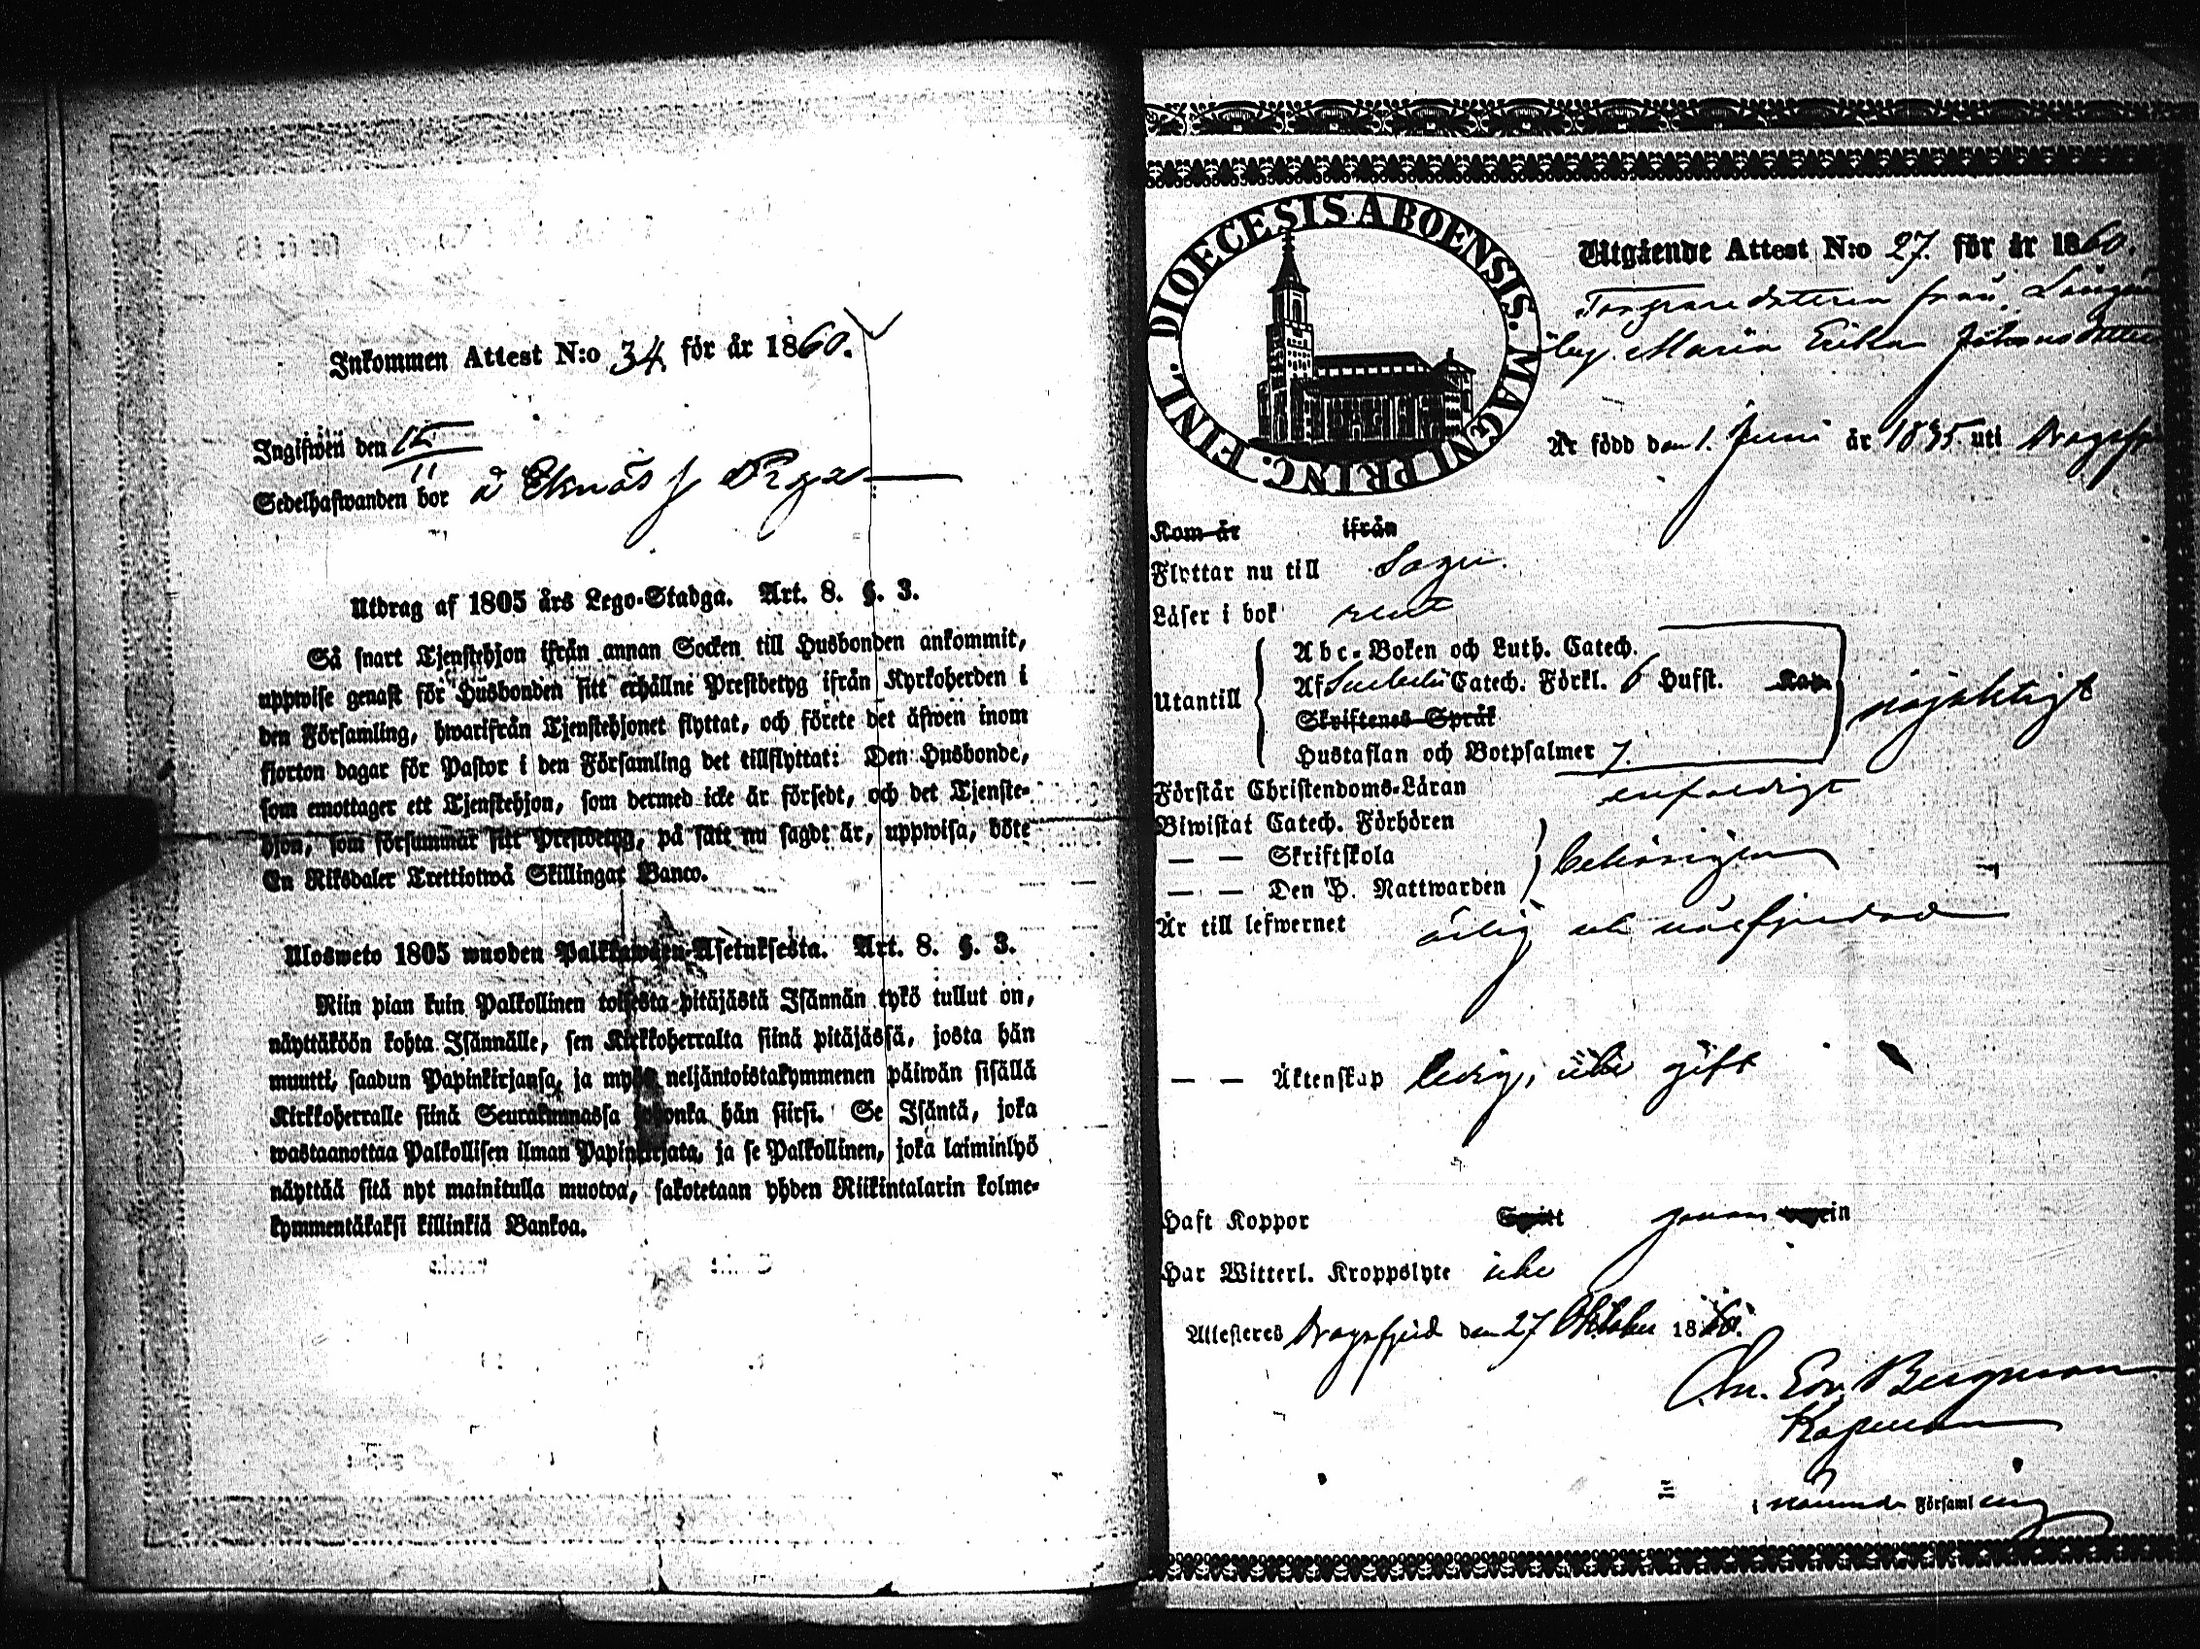 Inkommen Attest N:o 34 för år 1860.
Ingifwen den 15/11
Sedelhafwanden bor å Eknäs
Utdrag af 1805 års Lego-Stadga. Art. 8. §. 3.
Så snart Tjenstehjon ifrån annan Socken till Husbonden ankommit,
uppwise genast för Husbonden sitt erhållne Prestbetyg ifrån Kyrkoherden i
den Församling, hwarifrån Tjenstehjonet flyttat, och förete det äfwen inom
fjorton dagar för Pastor i den Församling det tillflyttat: Den Husbonde,
som emottager ett Tjenstehjon, som dermed icke är försedt, och det Tjenste-
hjon, som försummar sitt Prestbetyg, på sätt nu sagdt är, uppwisa, böte
En Riksdaler Trettiotwå Skillingar Banco.
Ulosweto 1805 wuoden Palkkawäen-Asetuksesta. Art. 8. §. 3.
Niin pian kuin Palkollinen toisesta pitäjästä Isännän tykö tullut on,
näyttäköön kohta Isännälle, sen Kirkkoherralta siinä pitäjässä, josta hän
muutti, saadun Papinkirjansa, ja myös neljäntoistakymmenen päiwän sisällä
Kirkkoherralle siinä Seurakunnassa johonka hän siirsi. Se Isäntä, joka
wastaanottaa Palkollisen ilman Papinkirjata, ja se Palkollinen, joka laiminlyö
näyttää sitä nyt mainitulla muotoa, sakotetaan yhden Riikintalarin kolme-
kymmentäkaksi killinkiä Bankoa.
DIOECESIS ABOENSIS. MAGNI PRINC. FINL.
Utgående Attest N:o 27. för år 1860.
Torparedottren från
Maria Erika Johansdotter
Är född den 1. Juni år 1835 uti Dragsfj
Kom år ifrån
Flyttar nu till Sagu.
Läser i bok rent
Utantill
Abc-Boken och Luth. Catech.
Af Svebelii Catech. Förkl. 6 Hufst. Kap.
Skriftenes Språk
Hustaflan och Botpsalmer 7.
nöjaktigt
Förstår Christendoms-Läran enfaldigt
Biwistat Catech. Förhören
— — Skriftskola
— — Den H. Nattwarden
behörigen
Är till lefwernet ärlig och oberyktad
— — Äktenskap ledig, icke gift
Haft Koppor genom
Har Witterl. Kroppslyte icke
Attesteras Dragsfjerd den 27 Oktober 1860.
Edv. Bergman
Kapellan
i nämnde Församling